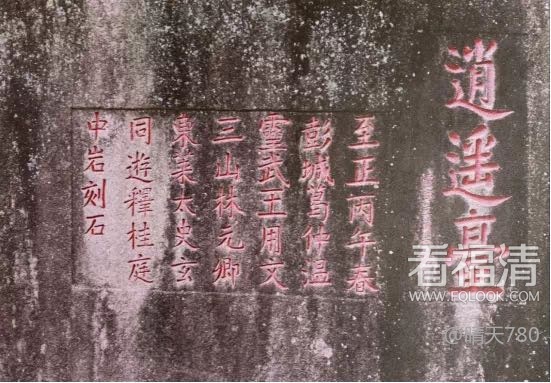 逍遥
至正丙午春
彭城葛仲温
靈武王用文
三山林元卿
東萊太史玄
同遊釋桂庭
中岩刻石
看福清
WWW.FQLOOK.COM
@晴天780